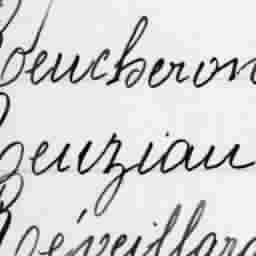 Beucheron
Beuziau
Béveillard